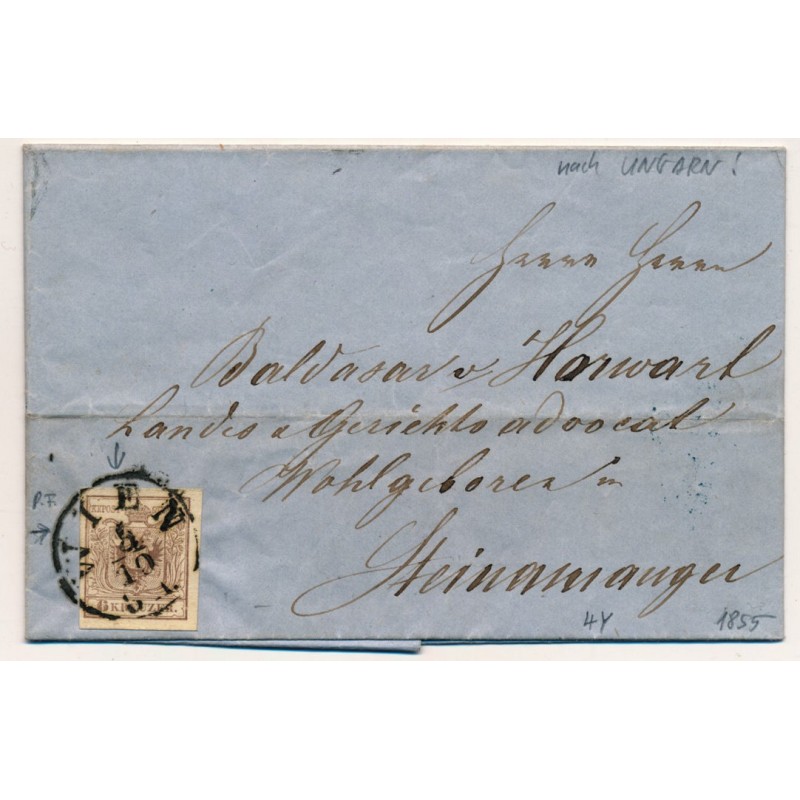 nach UNGARN!
Herrn Herrn
Baldasar v Horwart
Landes u Gerichts advocat
Wohlgeboren in
Steinamanger
P.F.
WIEN
10
6 KREUZER.
4Y
1855